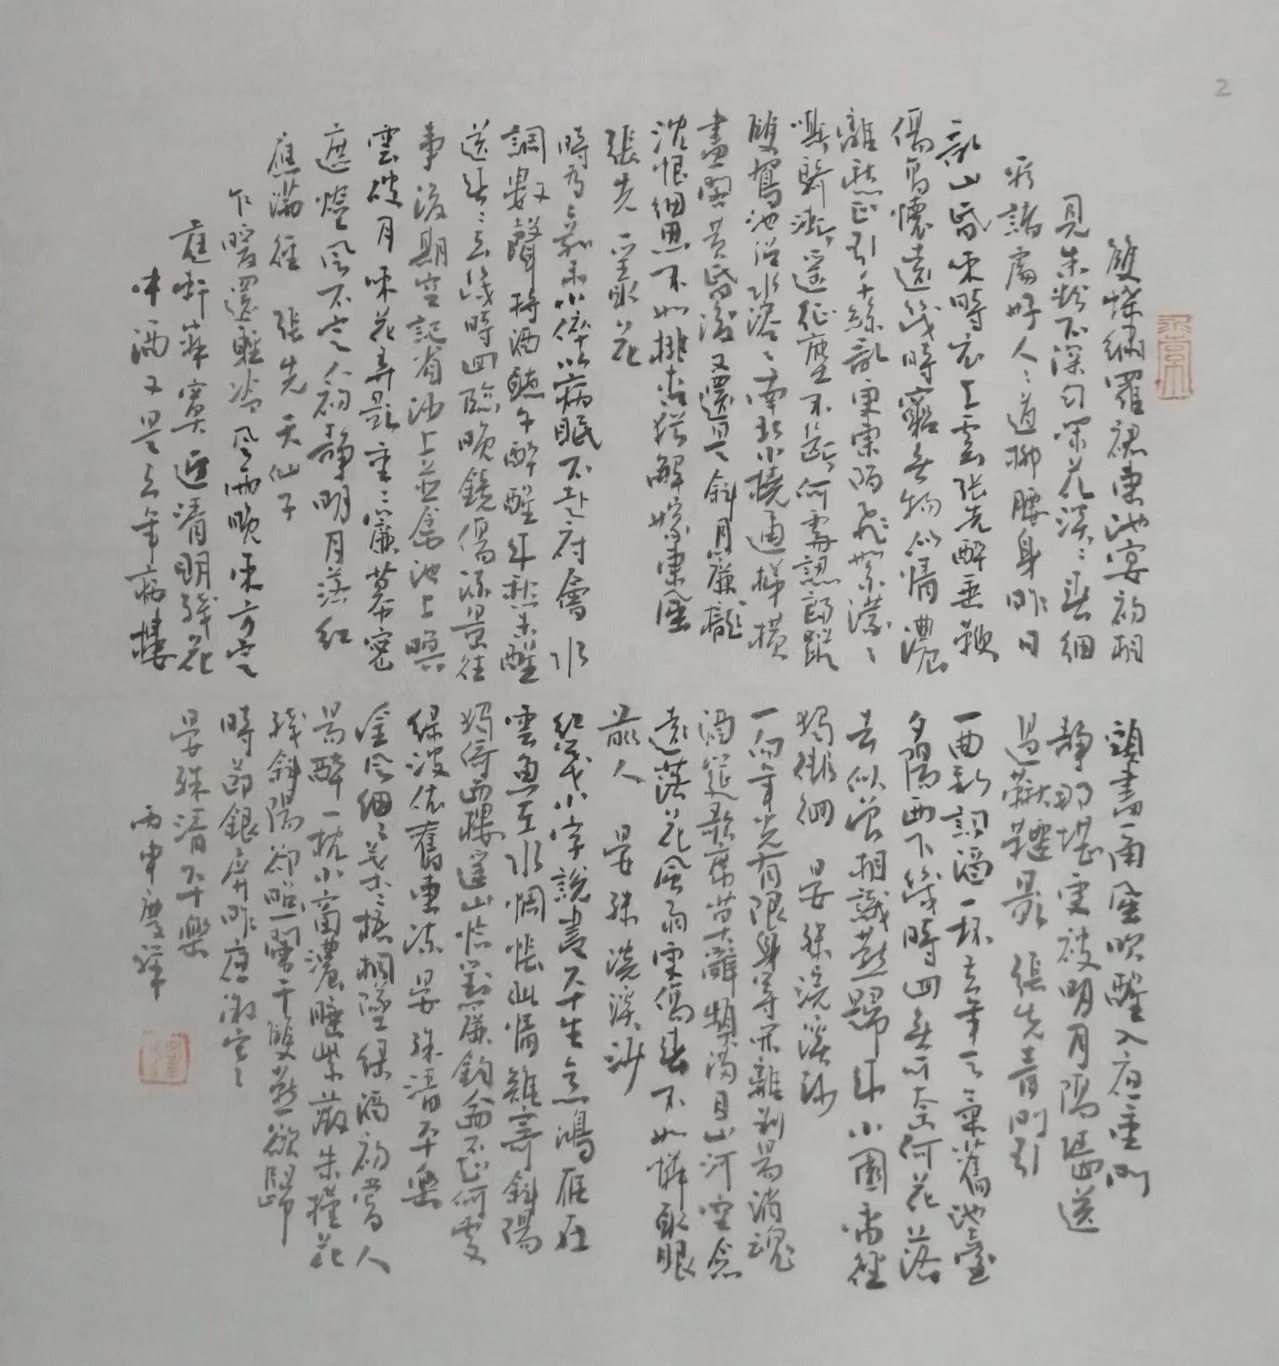 2
雙蝶繡羅裙東池宴初相
見朱粉不深勻閑花淡淡春細
看諸處好人人道柳腰身昨日
亂山昏來時衣上雲張先醉垂鞭
傷高懷遠幾時窮無物似情濃
離愁正引千絲亂更東陌飛絮濛濛
嘶騎漸遙征塵不斷何處認郎蹤
雙鴛池沼水溶溶南北小橈通梯橫
畫閣黃昏後又還是斜月簾櫳
沈恨細思不如桃杏猶解嫁東風
張先 一叢花
時為嘉禾小倅以病眠不赴府會 水
調數聲持酒聽午醉醒來愁未醒
送春春去幾時回臨晚鏡傷流景往
事後期空記省沙上並禽池上暝
雲破月來花弄影重重簾幕密
遮燈風不定人初靜明日落紅
應滿徑 張先 天仙子
乍暖還輕冷風雨晚來方定
庭軒寂寞近清明殘花
中酒又是去年病樓
頭畫角風吹醒入夜重門
靜那堪更被明月隔墻送
過鞦韆影 張先青門引
一曲新詞酒一杯去年天氣舊池臺
夕陽西下幾時回無可奈何花落
去似曾相識燕歸來小園香徑
獨徘徊 晏殊浣溪沙
一向年光有限身等閑離別易消魂
酒筵歌席莫辭頻滿目山河空念
遠落花風雨更傷春不如憐取眼
前人 晏殊浣溪沙
紅箋小字說盡平生意鴻雁在
雲魚在水惆悵此情難寄斜陽
獨倚西樓遙山恰對簾鉤人面不知何處
綠波依舊東流晏殊清平樂
金風細細葉葉梧桐墜綠酒初嘗人
易醉一枕小窗濃睡紫薇朱槿花
殘斜陽卻照闌干雙燕欲歸
時節銀屏昨夜微寒
晏殊清平樂
丙申慶祥